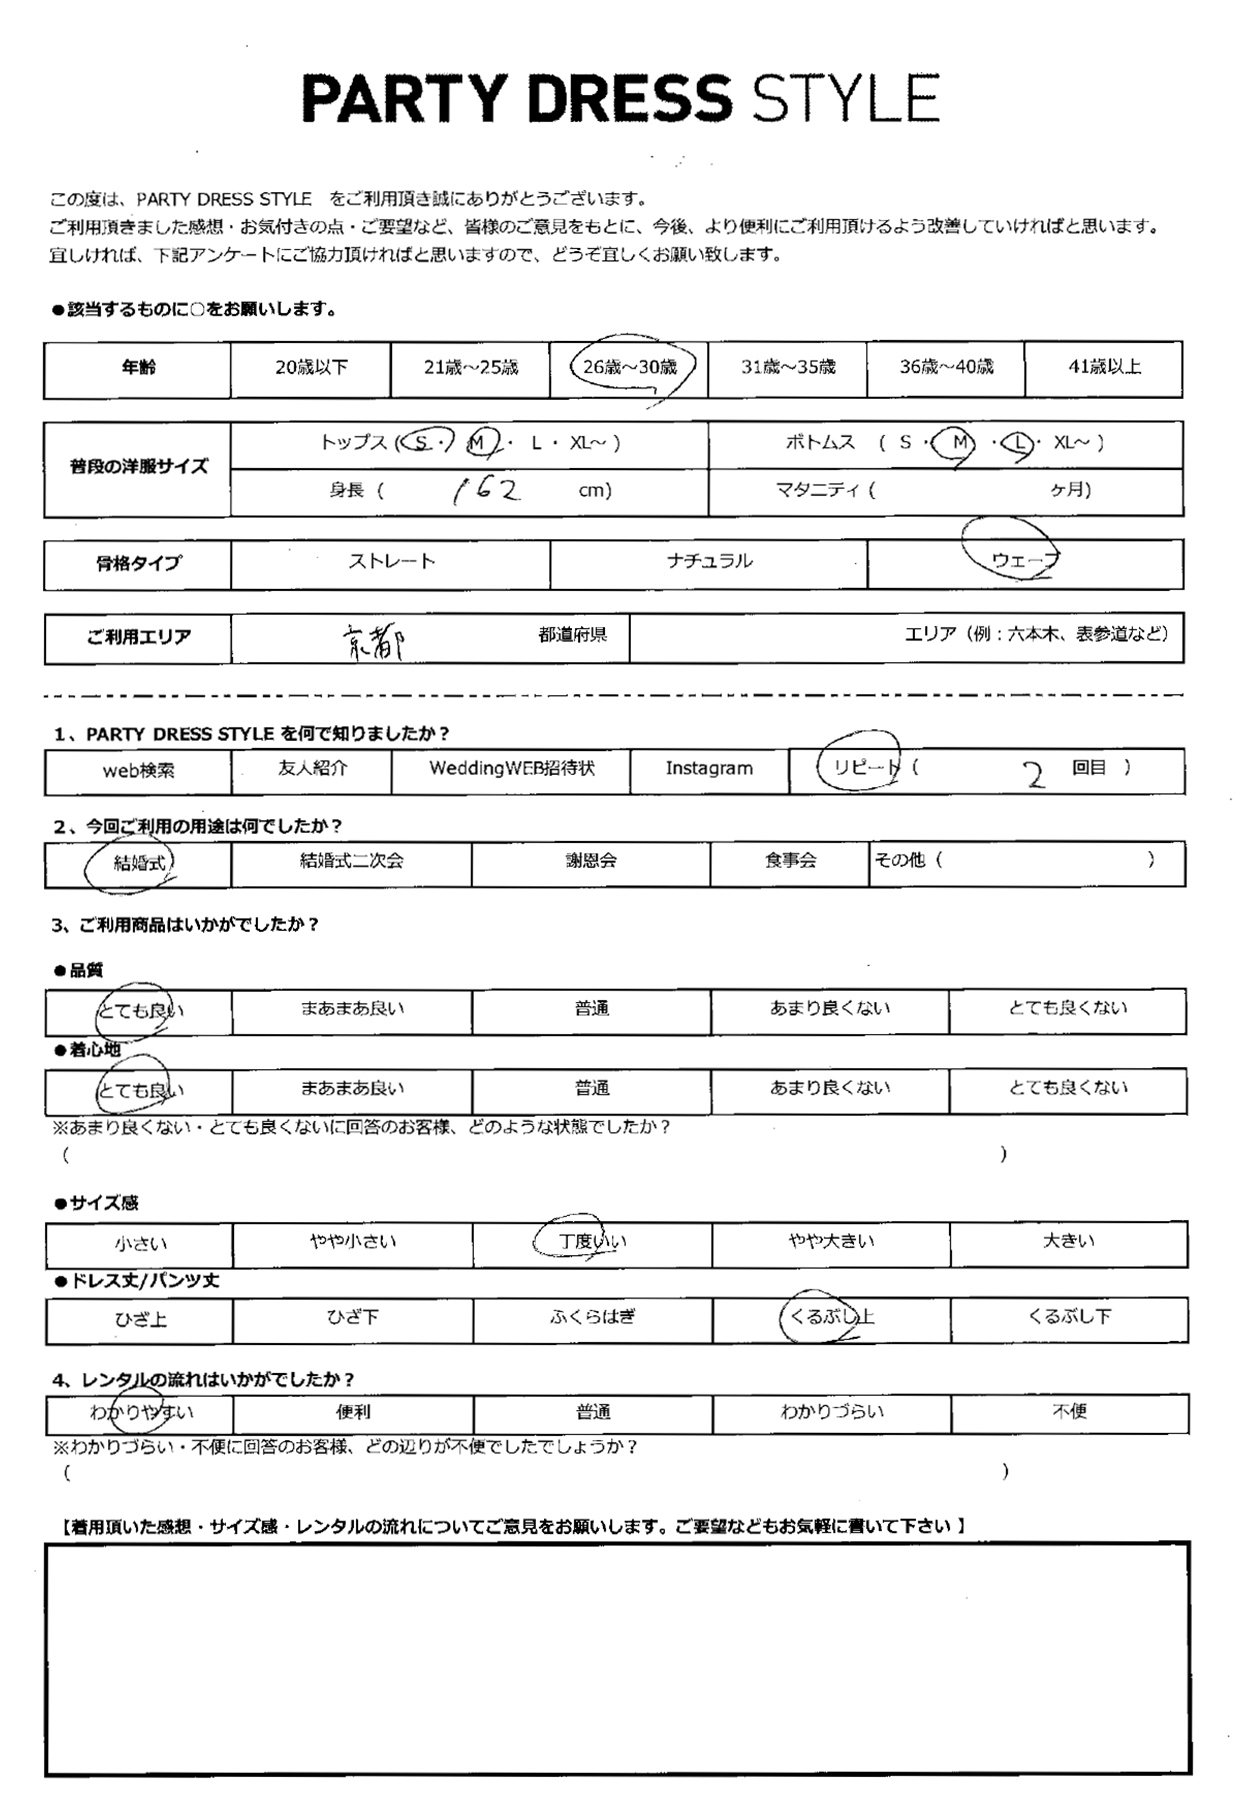 PARTY DRESS STYLE
この度は、PARTY DRESS STYLE をご利用頂き誠にありがとうございます。
ご利用頂きました感想・お気付きの点・ご要望など、皆様のご意見をもとに、今後、より便利にご利用頂けるよう改善していければと思います。
宜しければ、下記アンケートにご協力頂ければと思いますので、どうぞ宜しくお願い致します。
●該当するものに○をお願いします。
年齢 20歳以下 21歳～25歳 26歳～30歳 31歳～35歳 36歳～40歳 41歳以上
普段の洋服サイズ トップス (S・M・L・XL～) ボトムス (S・M・L・XL～)
身長 ( 162 cm) マタニティ ( ヶ月)
骨格タイプ ストレート ナチュラル ウェーブ
ご利用エリア 京都 都道府県 エリア（例：六本木、表参道など）
1、PARTY DRESS STYLE を何で知りましたか？
web検索 友人紹介 WeddingWEB招待状 Instagram リピート ( 2 回目 )
2、今回ご利用の用途は何でしたか？
結婚式 結婚式二次会 謝恩会 食事会 その他 ( )
3、ご利用商品はいかがでしたか？
●品質
とても良い まあまあ良い 普通 あまり良くない とても良くない
●着心地
とても良い まあまあ良い 普通 あまり良くない とても良くない
※あまり良くない・とても良くないに回答のお客様、どのような状態でしたか？
( )
●サイズ感
小さい やや小さい 丁度いい やや大きい 大きい
●ドレス丈/パンツ丈
ひざ上 ひざ下 ふくらはぎ くるぶし上 くるぶし下
4、レンタルの流れはいかがでしたか？
わかりやすい 便利 普通 わかりづらい 不便
※わかりづらい・不便に回答のお客様、どの辺りが不便でしたでしょうか？
( )
【着用頂いた感想・サイズ感・レンタルの流れについてご意見をお願いします。ご要望などもお気軽に書いて下さい 】